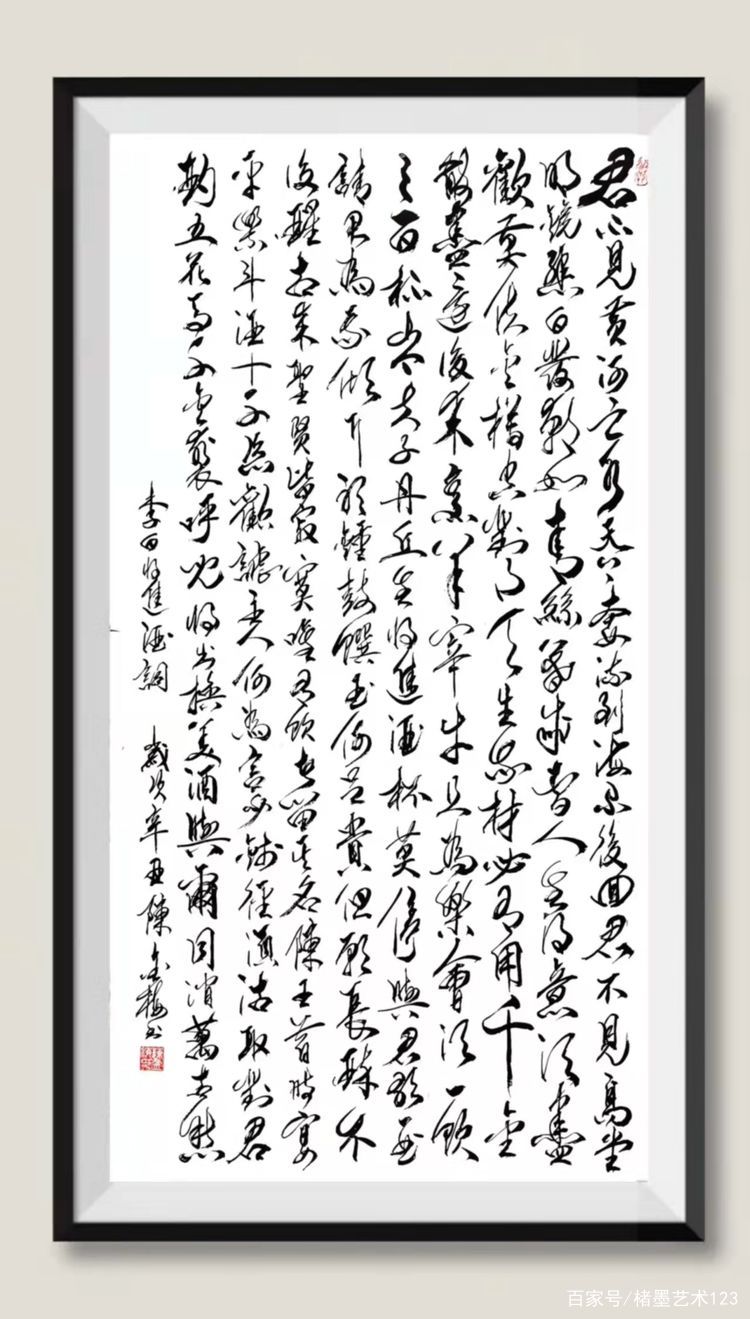 君不見黃河之水天上來奔流到海不復回君不見高堂
明鏡悲白髮朝如青絲暮成雪人生得意須盡
歡莫使金樽空對月天生我材必有用千金
散盡還復來烹羊宰牛且為樂會須一飲
三百杯岑夫子丹丘生將進酒杯莫停與君歌一曲
請君為我傾耳聽鐘鼓饌玉何足貴但願長醉不
復醒古來聖賢皆寂寞惟有飲者留其名陳王昔時宴
平樂斗酒十千恣歡謔主人何為言少錢徑須沽取對君
酌五花馬千金裘呼兒將出換美酒與爾同消萬古愁
李白將進酒詞 歲次辛丑陳金梅書
百家号/楮墨艺术123